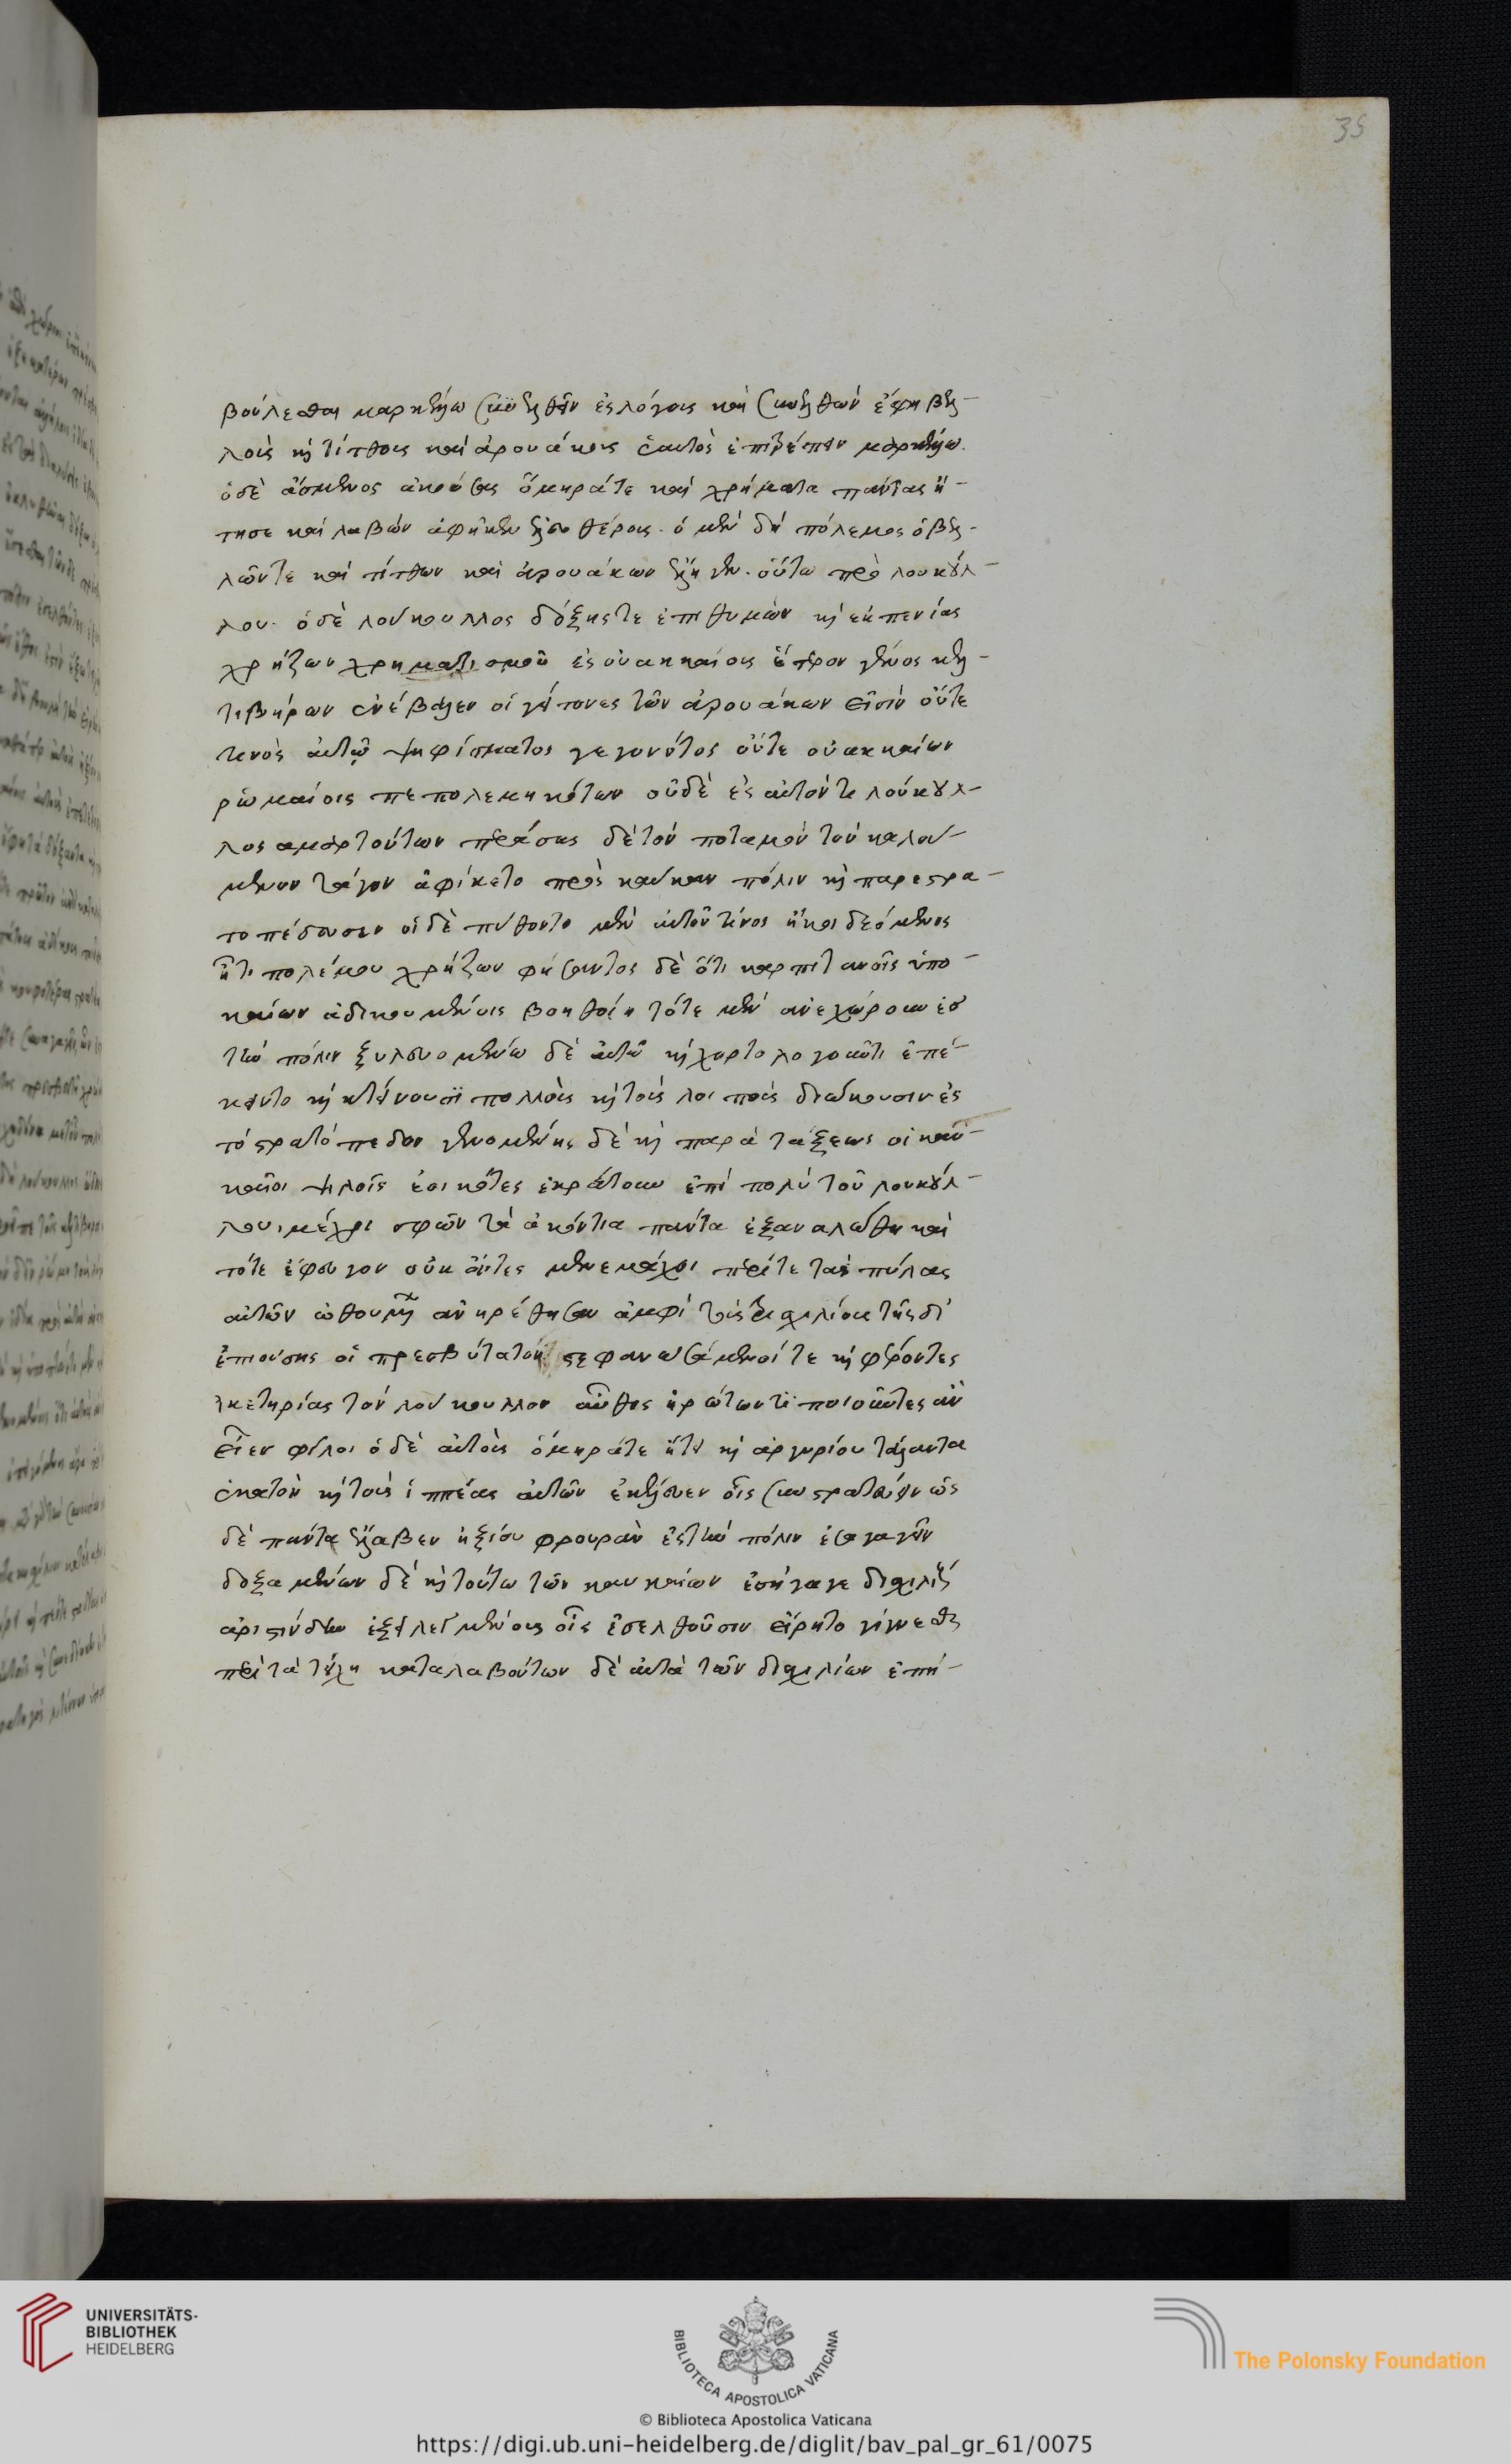 35
βούλεσθαι μαρκέλλω συνελθεῖν ἐς λόγους καὶ συνελθὼν ἔφη βελ-
λοὺς κὴ τίτθους καὶ ἀρουάκους ἑαυτοὺς ἐπιτρέπειν μαρκέλλω.
ὁ δὲ ἄσμενος ἀκούσας ὅμηράτε καὶ χρήματα πάντας ἤ-
τησε καὶ λαβὼν ἀφῆκεν ἐλευθέρους. ὁ μὲν δὴ πόλεμος ὁ βελ-
λῶντε καὶ τίτθων καὶ ἀρουάκων ἔληγεν. οὕτω πρὸ λουκούλ-
λου. ὁ δὲ λούκουλλος δόξηςτε ἐπιθυμῶν κὴ ἐκ πενίας
χρήζων χρηματισμοῦ ἐς οὐακκαίους ἕτερον γένος κελ-
τιβήρων ἐνέβαλεν οἳ γείτονες τῶν ἀρουάκων εἰσὶν οὔτε
τινὸς αὐτῷ ψηφίσματος γεγονότος οὔτε οὐακκαίων
ῥωμαίοις πεπολεμηκότων οὐδὲ ἐς αὐτόν τι λούκουλ-
λος ἁμαρτόντων περάσας δὲ τὸν ποταμὸν τὸν καλού-
μενον τάγον ἀφίκετο πρὸς καύκαν πόλιν κὴ παρεστρα-
τοπέδευσεν οἱ δὲ πύθοντο μὲν αὐτοῦ τίνος ἥκοι δεόμενος
ἢ τι πολέμου χρήζων φήσαντος δὲ ὅτι καρπιτανοῖς ὑπο
καίων ἀδικουμένοις βοηθοίη τότε μὲν ἀνεχώρουν ἐσ
τὴν πόλιν ξυλευομένω δὲ αὐτῶ κὴ χορτολογοῦντι ἐπέ-
κειντο κὴ κτείνουσί πολλοὺς κὴ τοὺς λοιποὺς διώκουσιν ἐς
τὸ στρατόπεδον γενομένης δὲ κὴ παρὰ τάξεως οἱ καυ-
καῖοι ψιλοῖς ἐοικότες ἐκράτουν ἐπὶ πολὺ τοῦ λουκούλ-
λου, μέχρι σφῶν τὰ ἀκόντια πάντα ἐξαναλώθη καὶ
τότε ἔφευγον οὐκ ὄντες μενεμάχοι περίτε τὰς πύλας
αὐτῶν ὠθουμ ἀνῃρέθησαν ἀμφὶ τοὺς τρισχιλίους τῆς δ'
ἐπιούσης οἱ πρεσβύτατοι στεφανωσάμενοί τε κὴ φέροντες
ἱκετηρίας τὸν λούκουλλον αὖθις ἠρώτων τί ποιοῦντες ἂν
εἶεν φίλοι ὁ δὲ αὐτοὺς ὅμηράτε ἤτει κὴ ἀργυρίου τάλαντα
ἑκατὸν κὴ τοὺς ἱππέας αὐτῶν ἐκέλευεν οἷς συστρατεύειν ὡς
δὲ πάντα ἔλαβεν ἠξίου φρουρὰν ἐς τὴν πόλιν ἐσαγαγεῖν
δεξαμένων δὲ κὴ τοῦτο τῶν καυκαίων ἐσήγαγε δισχιλί
ἀριστίνδην ἐξειλεγμένους οἷς ἐσελθοῦσιν εἴρητο γίγνεσθαι
περὶ τὰ τείχη καταλαβόντων δὲ αὐτὰ τῶν δισχιλίων ἐπή-
UNIVERSITÄTS-
BIBLIOTHEK
HEIDELBERG
BIBLIOTECA APOSTOLICA VATICANA
The Polonsky Foundation
© Biblioteca Apostolica Vaticana
https://digi.ub.uni-heidelberg.de/diglit/bav_pal_gr_61/0075